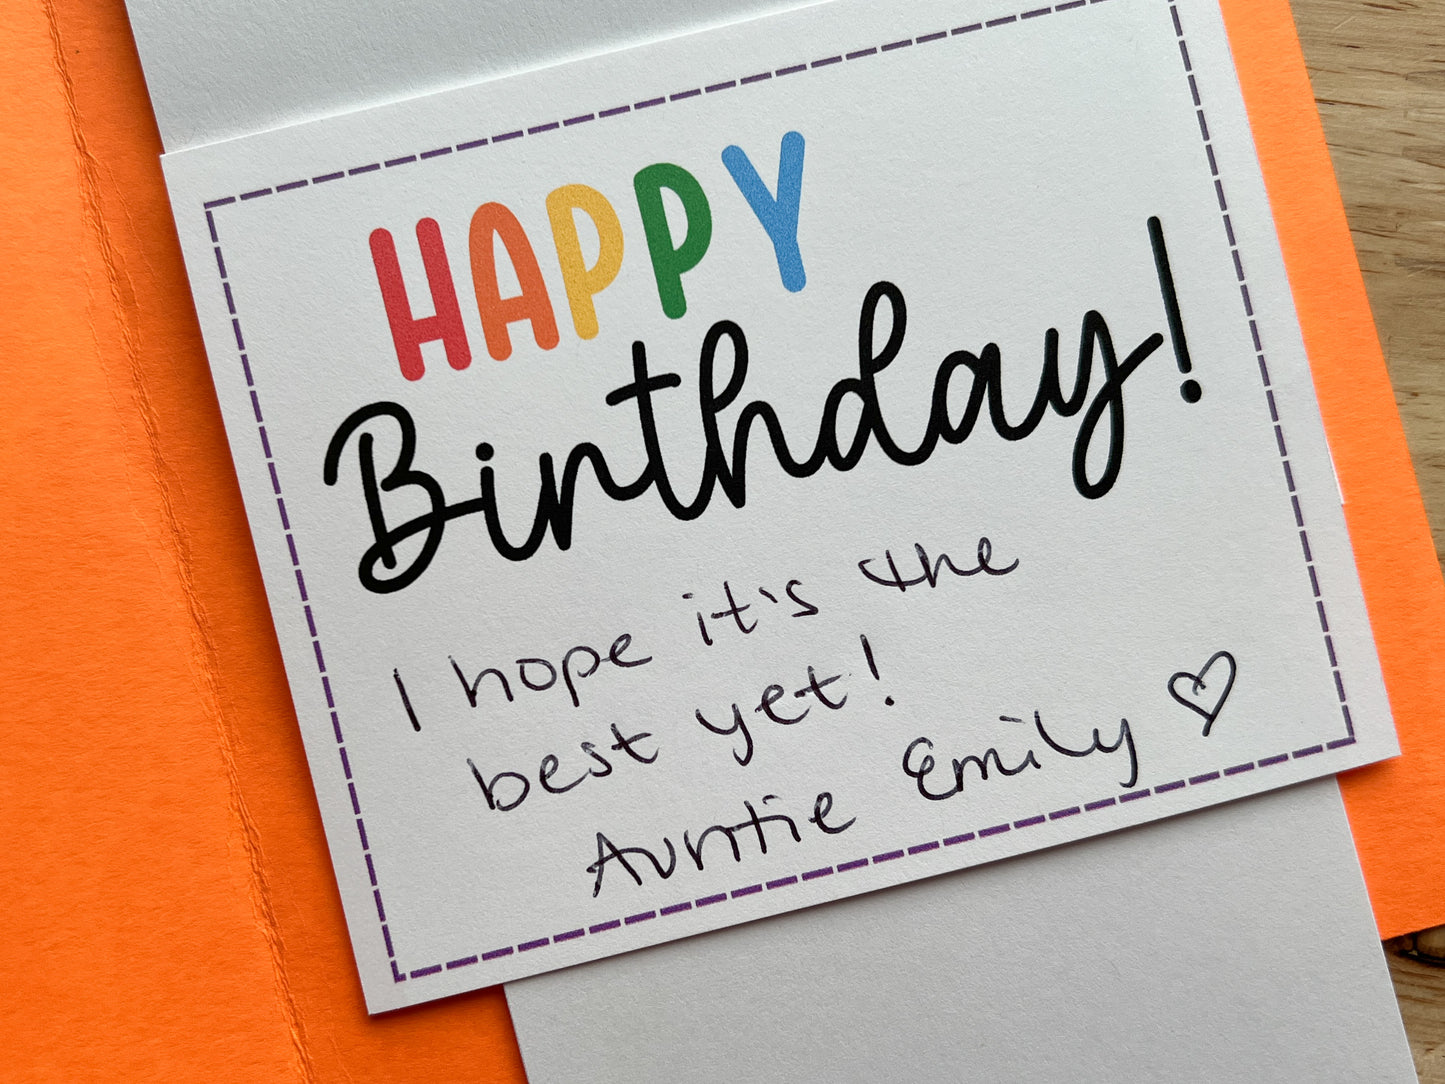 HAPPY
Birthday!
I hope it's the
best yet!
Auntie Emily ♡